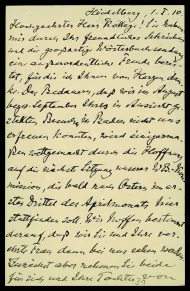 Heidelberg 1. I. 10
Hochgeehrter Herr Kollege! Sie haben
mir durch Ihr freundliches Schreiben
und die großartige Wörterbuchsendung
ein außerordentliche Freude berei-
tet, für die ich Ihnen von Herzen dan-
ke. Das Bedauern, daß wir im August
bezw. September Ihres in Aussicht ge-
stellten Besuchs in Baden nicht uns
erfreuen konnten, wird einigerma-
ßen wettgemacht durch die Hoffnung
auf die nächste Sitzung unserer WB-Kom-
mission, die bald nach Ostern im er-
sten Drittel des Aprilmonats hier
stattfinden soll. Wir hoffen bestimmt
darauf, daß wir Sie und Ihre ver-
ehrte Frau dann bei uns sehen werden.
Zunächst aber nehmen Sie beide
für sich und Ihre Töchter, von